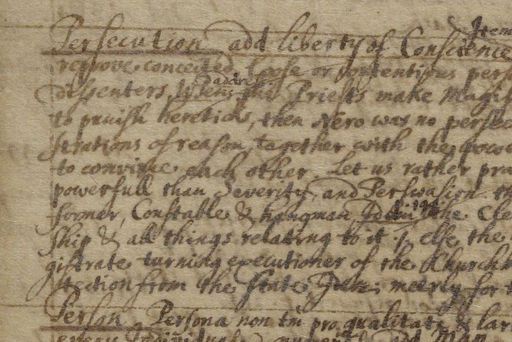 Item
Persecution add liberty of Conscience
remove conceited loose or contentious pers
dissenters, when the Priests make Magis
to punish hereticks, then Nero was no persec
strations of reason, together with the powe
to convince each other. Let us rather pra
powerfull than Severity, and Perswasion th
former, Constable & hangman Idem. 199. the Cle
ship & all things relating to it; else the
gistrate turning executioner of the Church
stection from the State Idem: meerly for t
Person, Persona non tm pro qualitate & lar
every Individual add Man